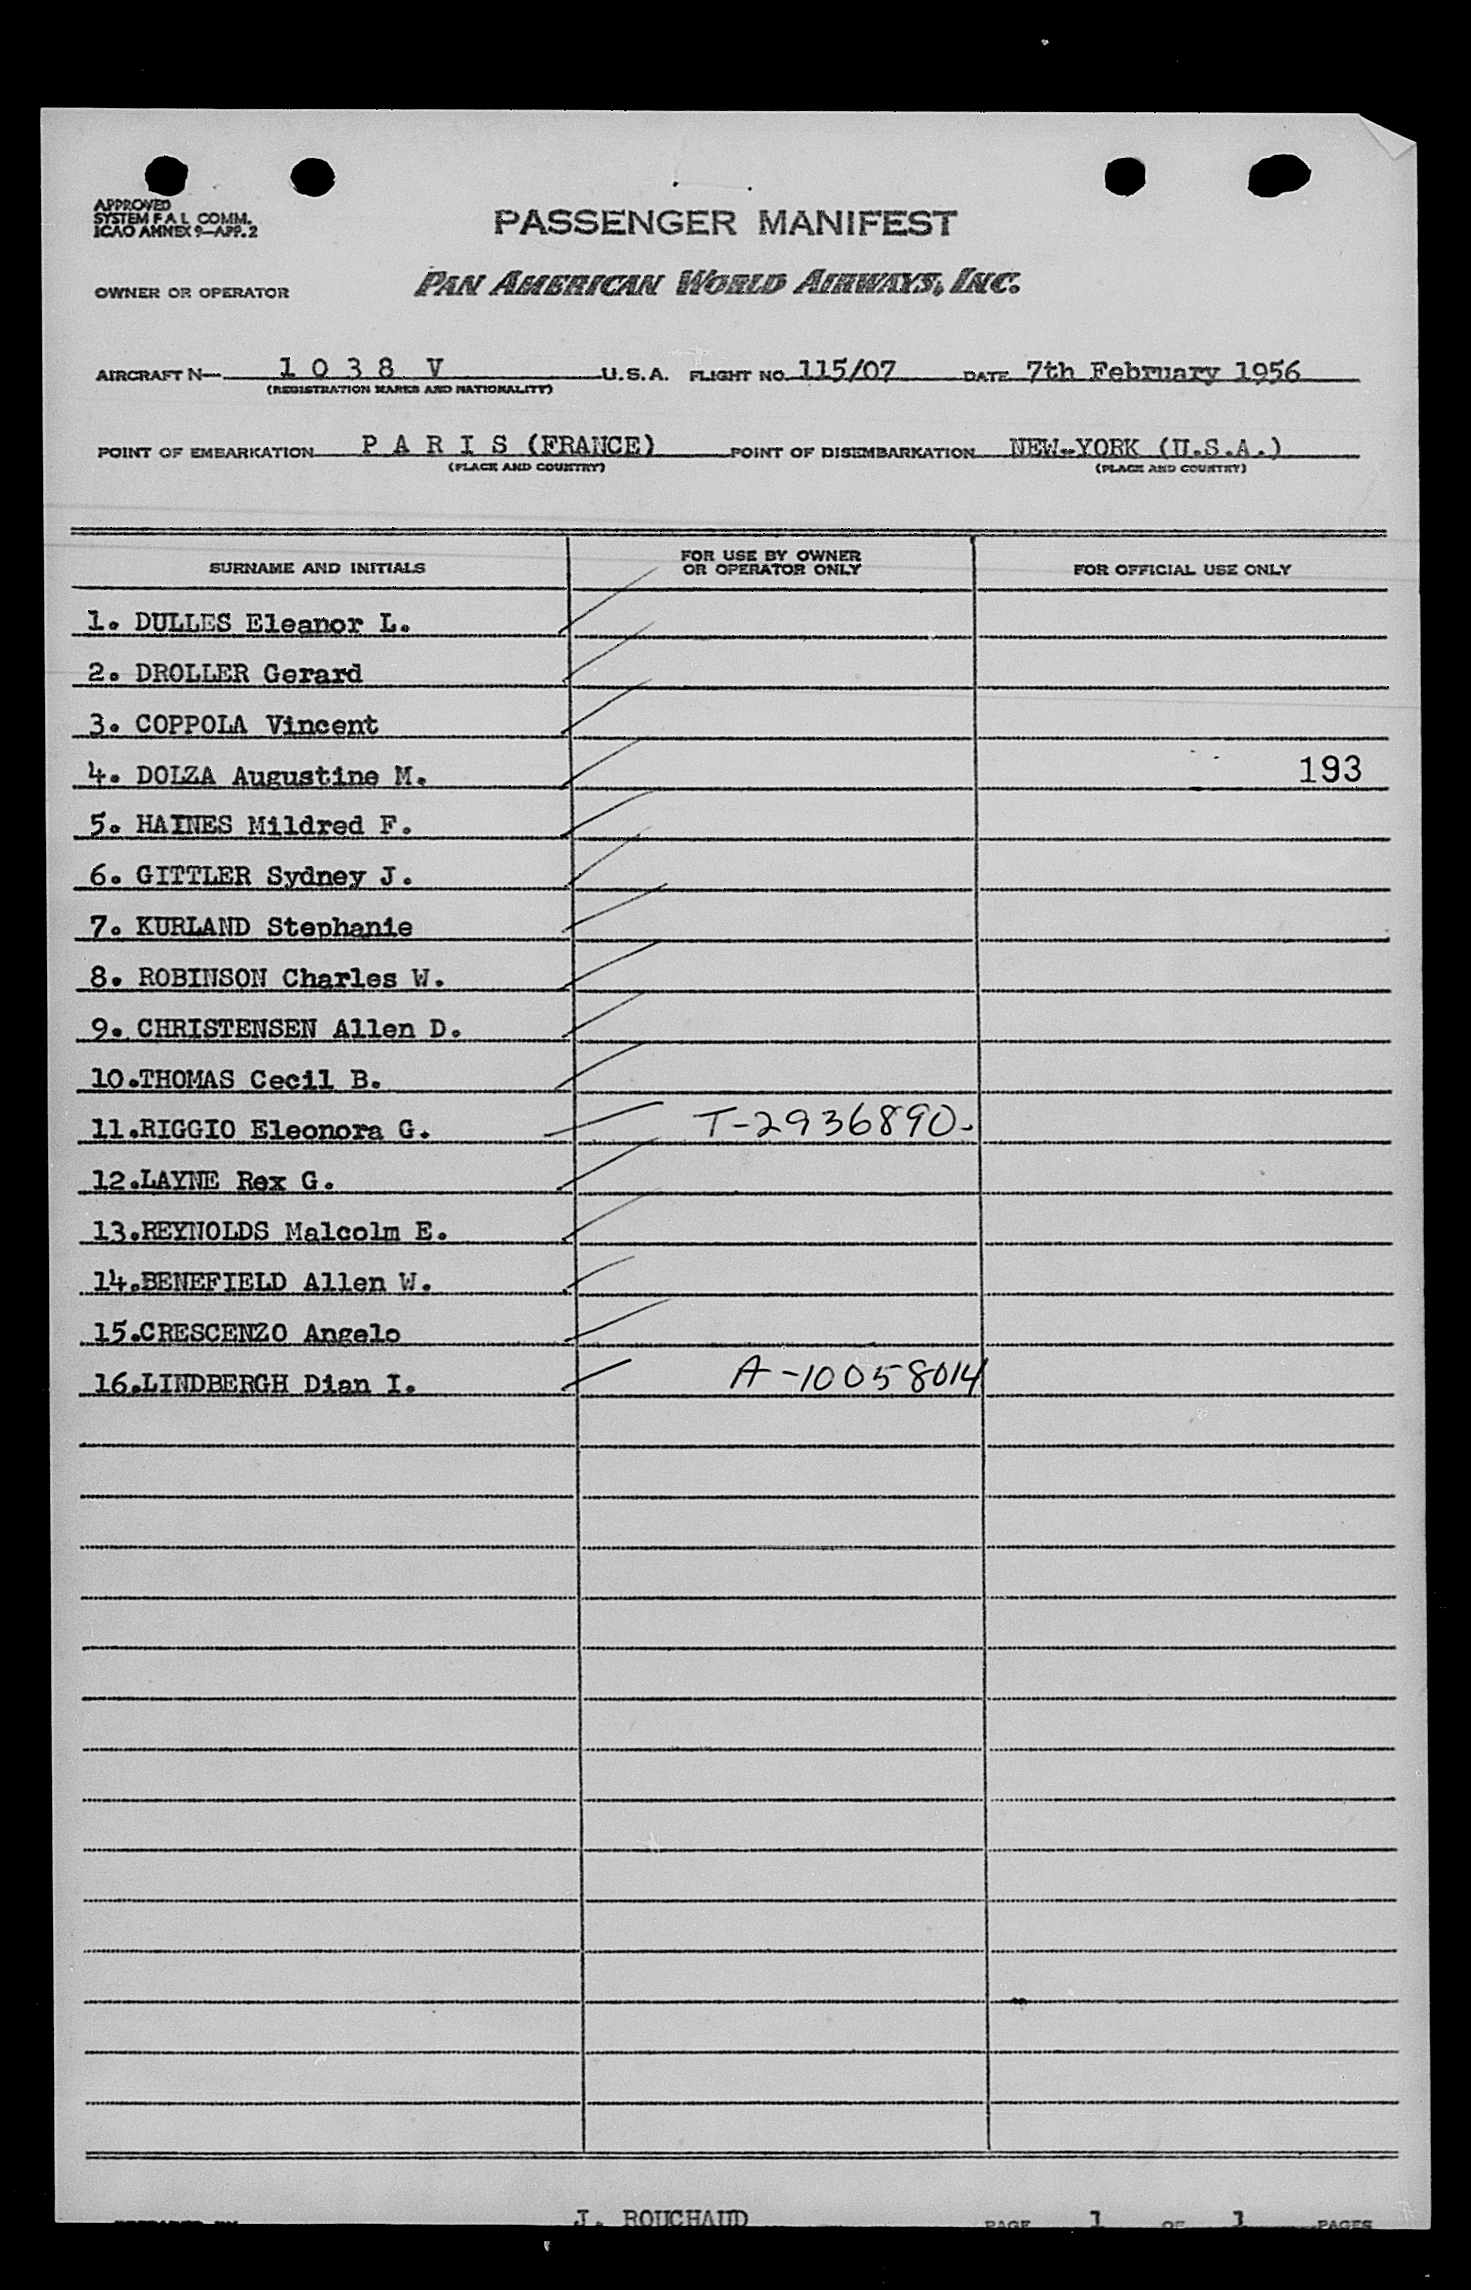 APPROVED
SYSTEM F A L COMM.
ICAO ANNEX 9—APP. 2
PASSENGER MANIFEST
OWNER OR OPERATOR PAN AMERICAN WORLD AIRWAYS, INC.
AIRCRAFT N— 1 0 3 8 V U.S.A. FLIGHT NO. 115/07 DATE 7th February 1956
(REGISTRATION MARKS AND NATIONALITY)
POINT OF EMBARKATION P A R I S (FRANCE) POINT OF DISEMBARKATION NEW-YORK (U.S.A.)
(PLACE AND COUNTRY) (PLACE AND COUNTRY)
SURNAME AND INITIALS FOR USE BY OWNER OR OPERATOR ONLY FOR OFFICIAL USE ONLY
1. DULLES Eleanor L.
2. DROLLER Gerard
3. COPPOLA Vincent
4. DOLZA Augustine M. 193
5. HAINES Mildred F.
6. GITTLER Sydney J.
7. KURLAND Stephanie
8. ROBINSON Charles W.
9. CHRISTENSEN Allen D.
10.THOMAS Cecil B.
11.RIGGIO Eleonora G. T-2936890-
12.LAYNE Rex G.
13.REYNOLDS Malcolm E.
14.BENEFIELD Allen W.
15.CRESCENZO Angelo
16.LINDBERGH Dian I. A-10058014
PREPARED BY J. ROUCHAUD PAGE 1 OF 1 PAGES